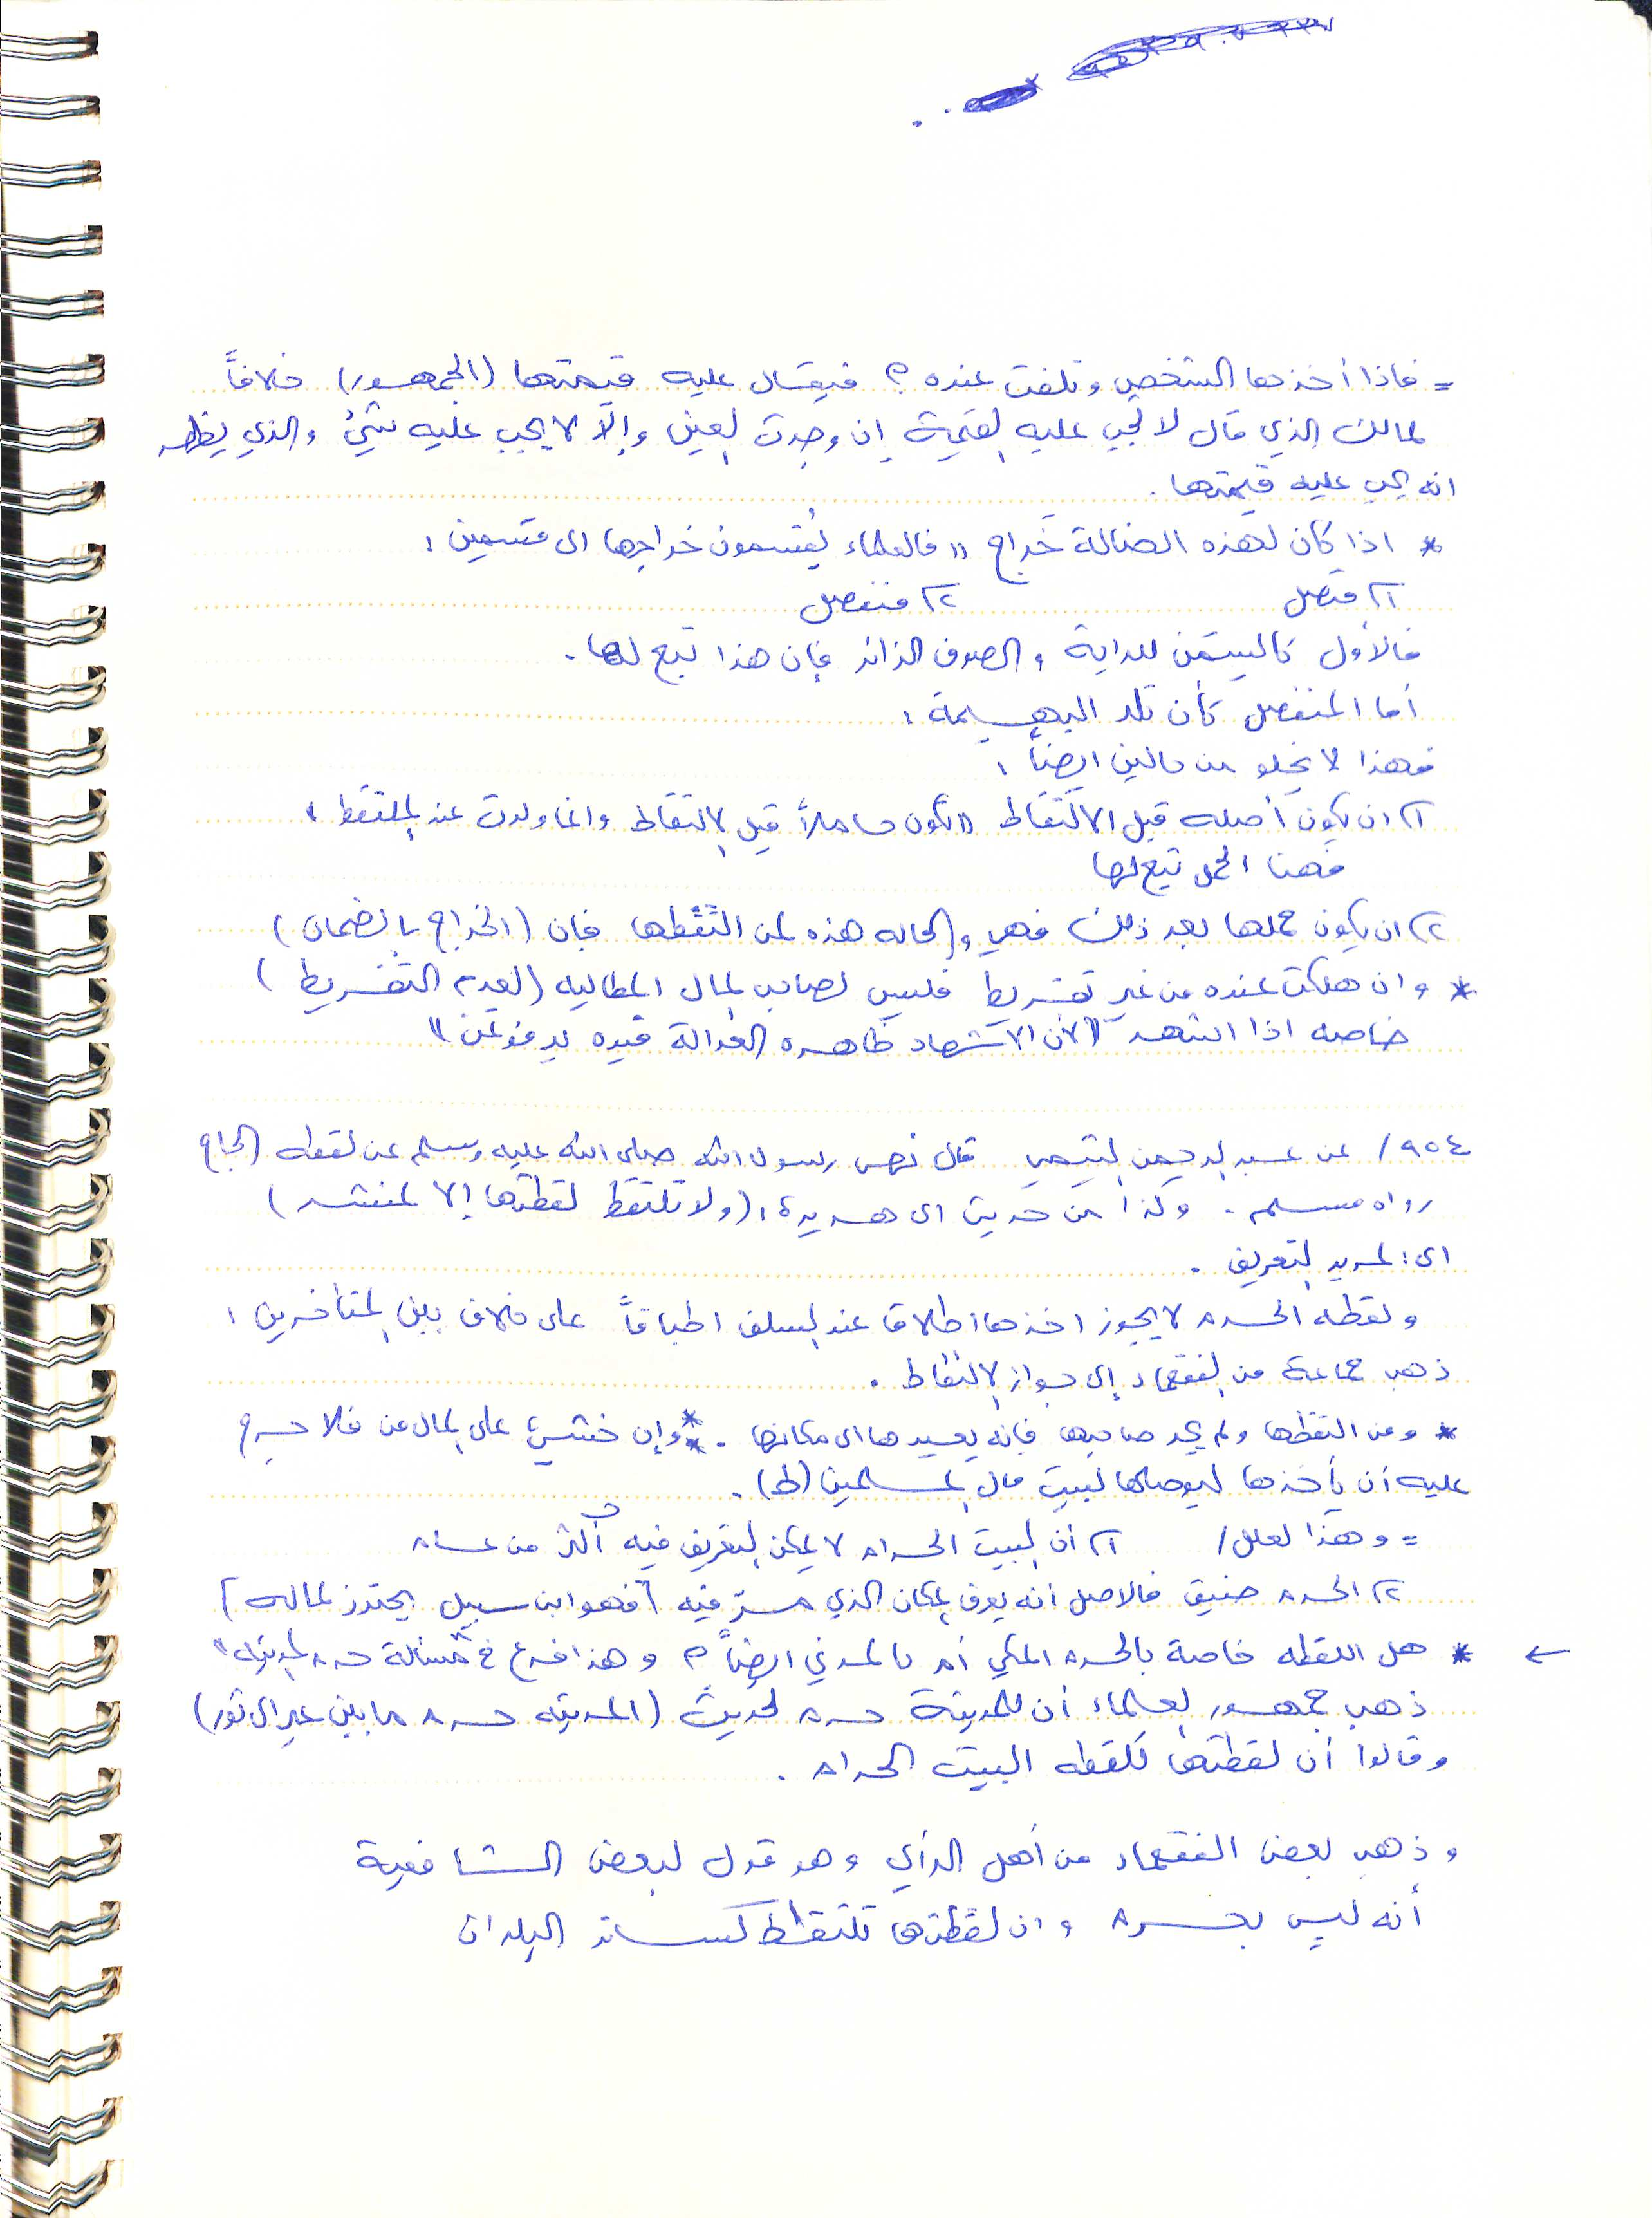 = فاذا أخذها الشخص وتلفت عنده ؟ فيقال عليه قيمتها (الجمهور) خلافاً
لمالك الذي قال لا تجب عليه القيمة إن وجدت العين وإلّا لا يجب عليه شيءٌ والذي يظهر
انه يجب عليه قيمتها .
* اذا كان لهذه الضالة خَراج " فالعلماء يُقسمون خراجها الى قسمين :
١) متصل ٢) منفصل
فالأول كالسِمَن للدابة والصوف الزائد فإن هذا تبع لها .
أما المنفصل كأن تلد البهيمة :
فهذا لا يخلو من حالين ايضاً :
١) ان يكون أصله قبل الالتقاط " تكون حاملاً قبل الالتقاط وانما ولدت عند الملتقط "
فهنا الحمل تبع لها
٢) ان يكون حملها بعد ذلك فهي والحاله هذه لمن الْتَقَطها فإن (الخراج بالضمان)
* وان هلكت عنده من غير تفريط فليس لصاحب المال المطالبه (لعدم التفريط )
خاصه اذا اشهد "لأن الاشهاد ظاهره العدالة فيده يد مؤتمن "
٩٥٤/ عن عبد الرحمن التيمي قال نهى رسول الله صلى الله عليه وسلم عن لقطه الحاج
رواه مسلم . وكذا من حديث ابي هريرة : (ولا تلتقط لقطتها إلا لمنشد )
اي : لمريد التعريف .
ولقطه الحرم لا يجوز اخذها اطلاقا عند السلف اطباقاً على خلاف بين المتأخرين :
ذهب جماعة من الفقهاء إلى جواز الالتقاط .
* ومن التقطها ولم يجد صاحبها فإنه يعيدها الى مكانها . ** وإن خشيَ على المال من فلا حرج
عليه أن يأخذها ليوصلها لبيت مال المسلمين (ط) .
= وهذا لعلل / ١) أن البيت الحرام لا يمكن التعريف فيه أكثر من عام
٢) الحرم ضيق فالاصل انه يعرف المكان الذي مرّ فيه [فهو ابن سبيل يحترز لماله ]
← * هل اللقطه خاصة بالحرم المكي أم بالمدني ايضاً ؟ وهذا فرع في "مسألة حرم المدينه "
ذهب جمهور العلماء أن للمدينة حرم لحديث (المدينه حرم ما بين عير الى ثور)
وقالوا أن لقطتها كلقطه البيت الحرام .
وذهب بعض الفقهاء من أهل الرأي وهو قول لبعض الشافعية
أنه ليس بحرم وان لقطتها تلتقط كسائر البلدان